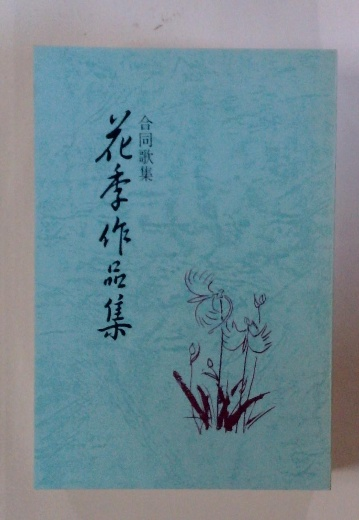 合同歌集
花季作品集